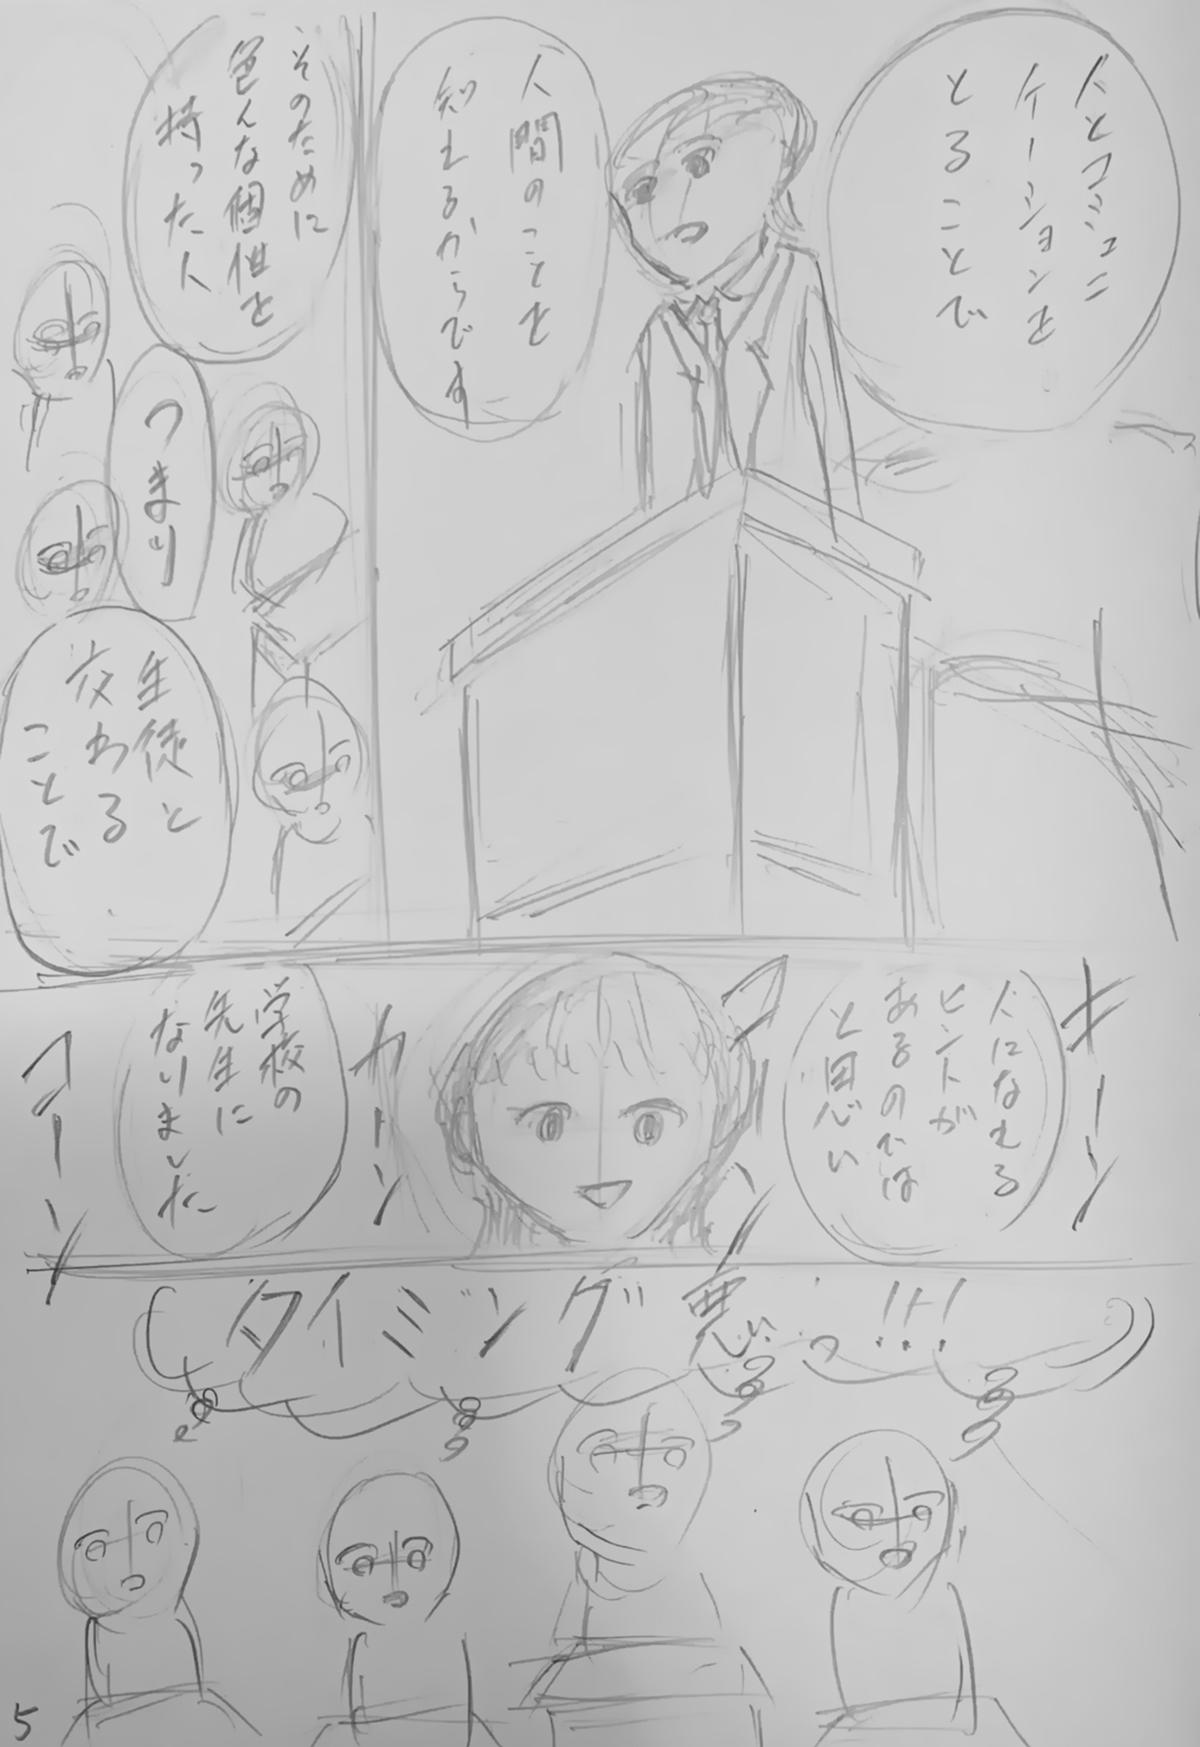 人とコミュニ
ケーションを
とることで
人間のことを
知れるからです
そのために
色んな個性を
持った人
つまり
生徒と
交わる
ことで
キーン
人になれる
ヒントが
あるのでは
と思い
コーン
カーン
学校の
先生に
なりました
コーン
(タイミング悪いっ!!!)
5